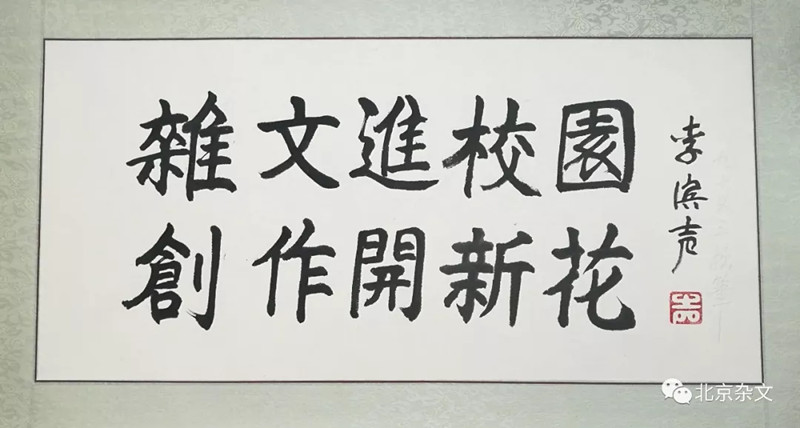 雜文進校園
創作開新花
李滨声
北京杂文